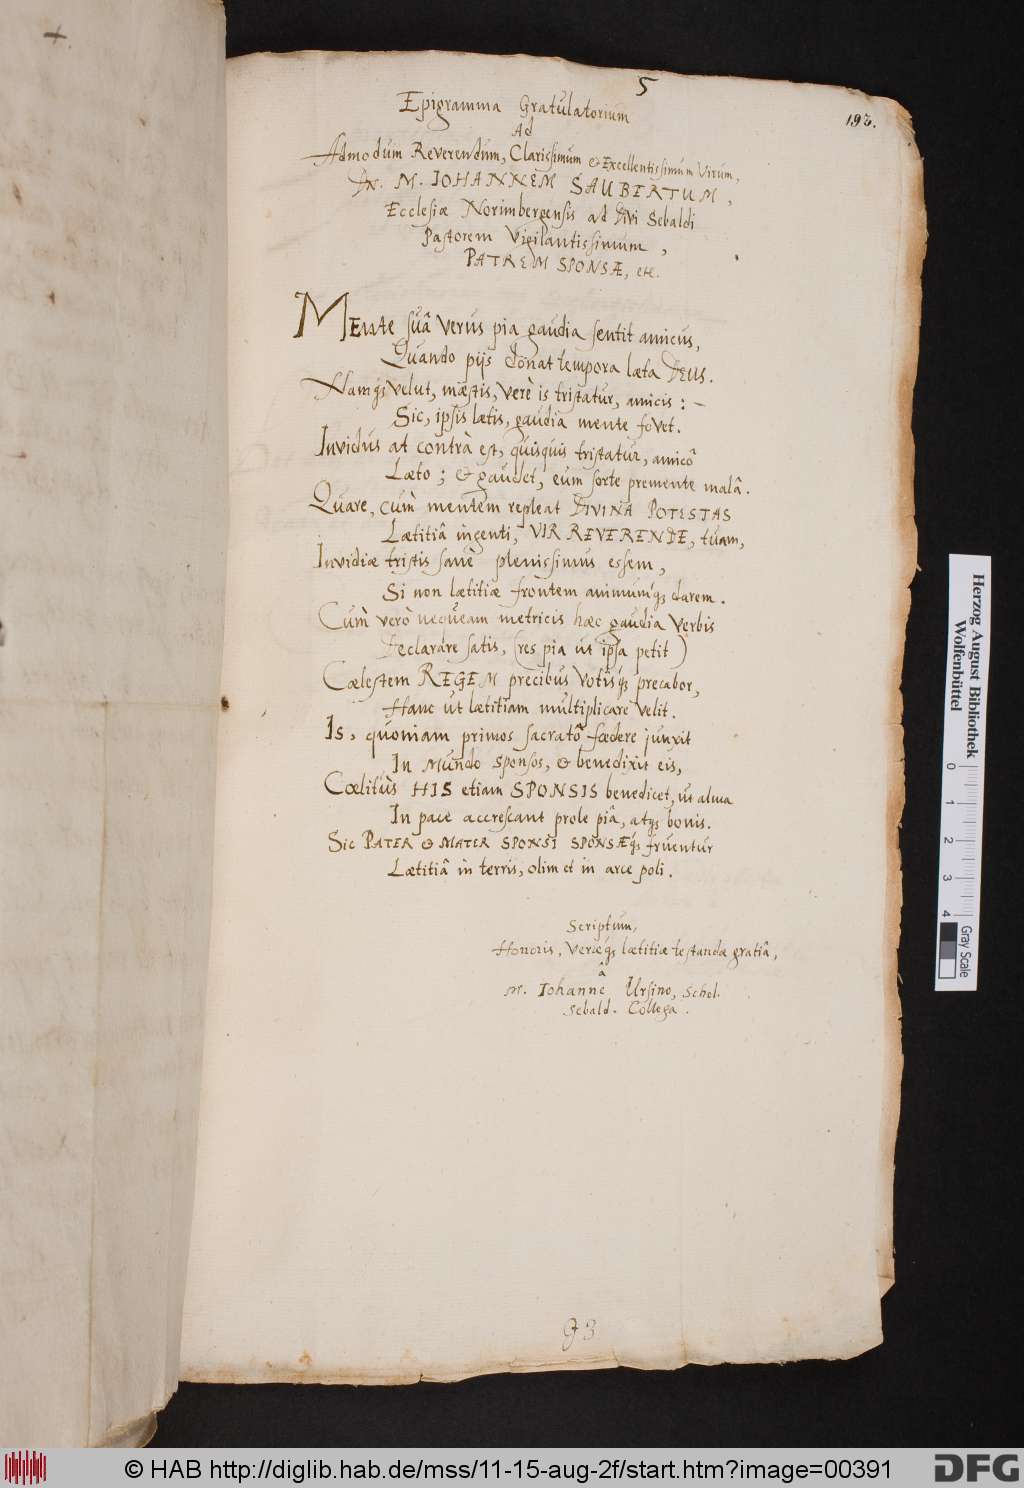 5
193.
Epigramma Gratulatorium
Ad
Admodum Reverendum, Clarissimum & Excellentissimum Virum,
Dn. M. IOHANNEM SAUBERTUM,
Ecclesiæ Norimbergensis ad Divi Sebaldi
Pastorem Vigilantissimum,
PATREM SPONSÆ, etc.
MEnte suâ verus pia gaudia sentit amicus,
Quando pijs donat tempora læta DEUS.
Namq; velut, mæstis, verè is tristatur, amicis: –
Sic, ipsis lætis, gaudia mente fovet.
Invidus at contrà est, quisquis tristatur, amicô
Læto; & gaudet, eum sorte premente malâ.
Quare, cùm mentem repleat DIVINA POTESTAS
Lætitiâ ingenti, VIR REVERENDE, tuam,
Invidiæ tristis sanè plenissimus essem,
Si non lætitiæ frontem animumq; darem.
Cùm verò nequeam metricis hæc gaudia verbis
Declarare satis, (res pia ut ipsa petit)
Cælestem REGEM precibus votisq; precabor,
Hanc ut lætitiam multiplicare velit.
Is, quoniam primos sacratô fœdere junxit
In Mundo sponsos, & benedixit eis,
Cœlitùs HIS etiam SPONSIS benedicet, ut alma
In pace accrescant prole piâ, atq; bonis.
Sic PATER & MATER SPONSI SPONSÆq; fruentur
Lætitiâ in terris, olim et in arce poli.
Scriptum,
Honoris, Veræq; lætitiæ testandæ gratiâ,
â
M. Iohanne Ursino, Schol.
Sebald. Collega.
G 3
Herzog August Bibliothek
Wolfenbüttel
0 1 2 3 4
Gray Scale
© HAB http://diglib.hab.de/mss/11-15-aug-2f/start.htm?image=00391
DFG